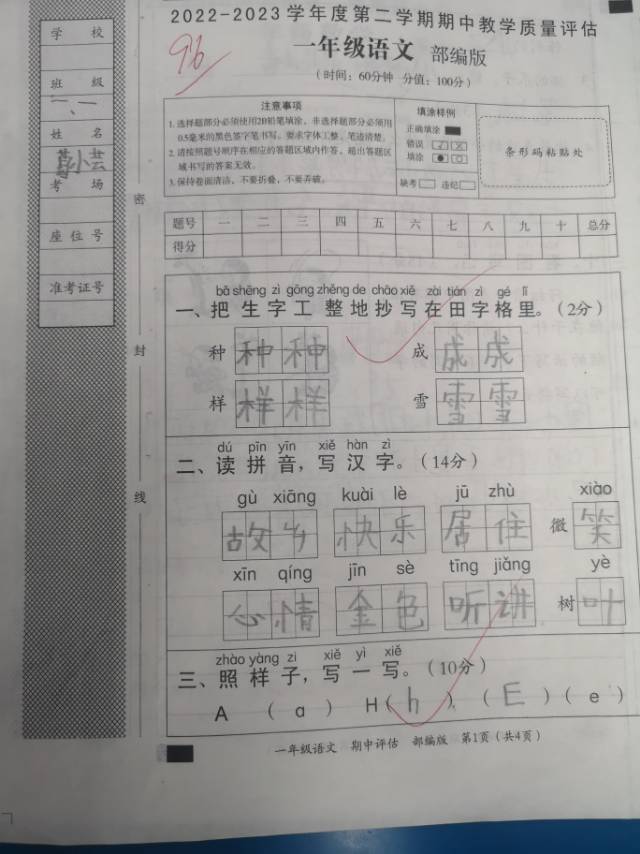 2022-2023学年度第二学期期中教学质量评估
96
一年级语文 部编版
（时间：60分钟 分值：100分）
学校
班级
一、一
姓名
小芸
考场
座位号
准考证号
密
封
线
注意事项
1.选择题部分必须使用2B铅笔填涂，非选择题部分必须用
0.5毫米的黑色签字笔书写。要求字体工整、笔迹清楚。
2.请按照题号顺序在相应的答题区域内作答，超出答题区
域书写的答案无效。
3.保持卷面清洁，不要折叠，不要弄破。
填涂样例
正确填涂
错误
填涂
缺考 违纪
条形码粘贴处
题号 一 二 三 四 五 六 七 八 九 十 总分
得分
bǎ shēng zì gōng zhěng de chāo xiě zài tián zì gé lǐ
一、把生字工整地抄写在田字格里。（2分）
种 种 种 成 成 成
样 样 样 雪 雪 雪
dú pīn yīn xiě hàn zì
二、读拼音，写汉字。（14分）
gù xiāng kuài lè jū zhù xiào
故乡 快乐 居住 微笑
xīn qíng jīn sè tīng jiǎng yè
心情 金色 听讲 树叶
zhào yàng zi xiě yì xiě
三、照样子，写一写。（10分）
A （ a ） H（ h ） （ E ）（ e ）
一年级语文 期中评估 部编版 第1页（共4页）